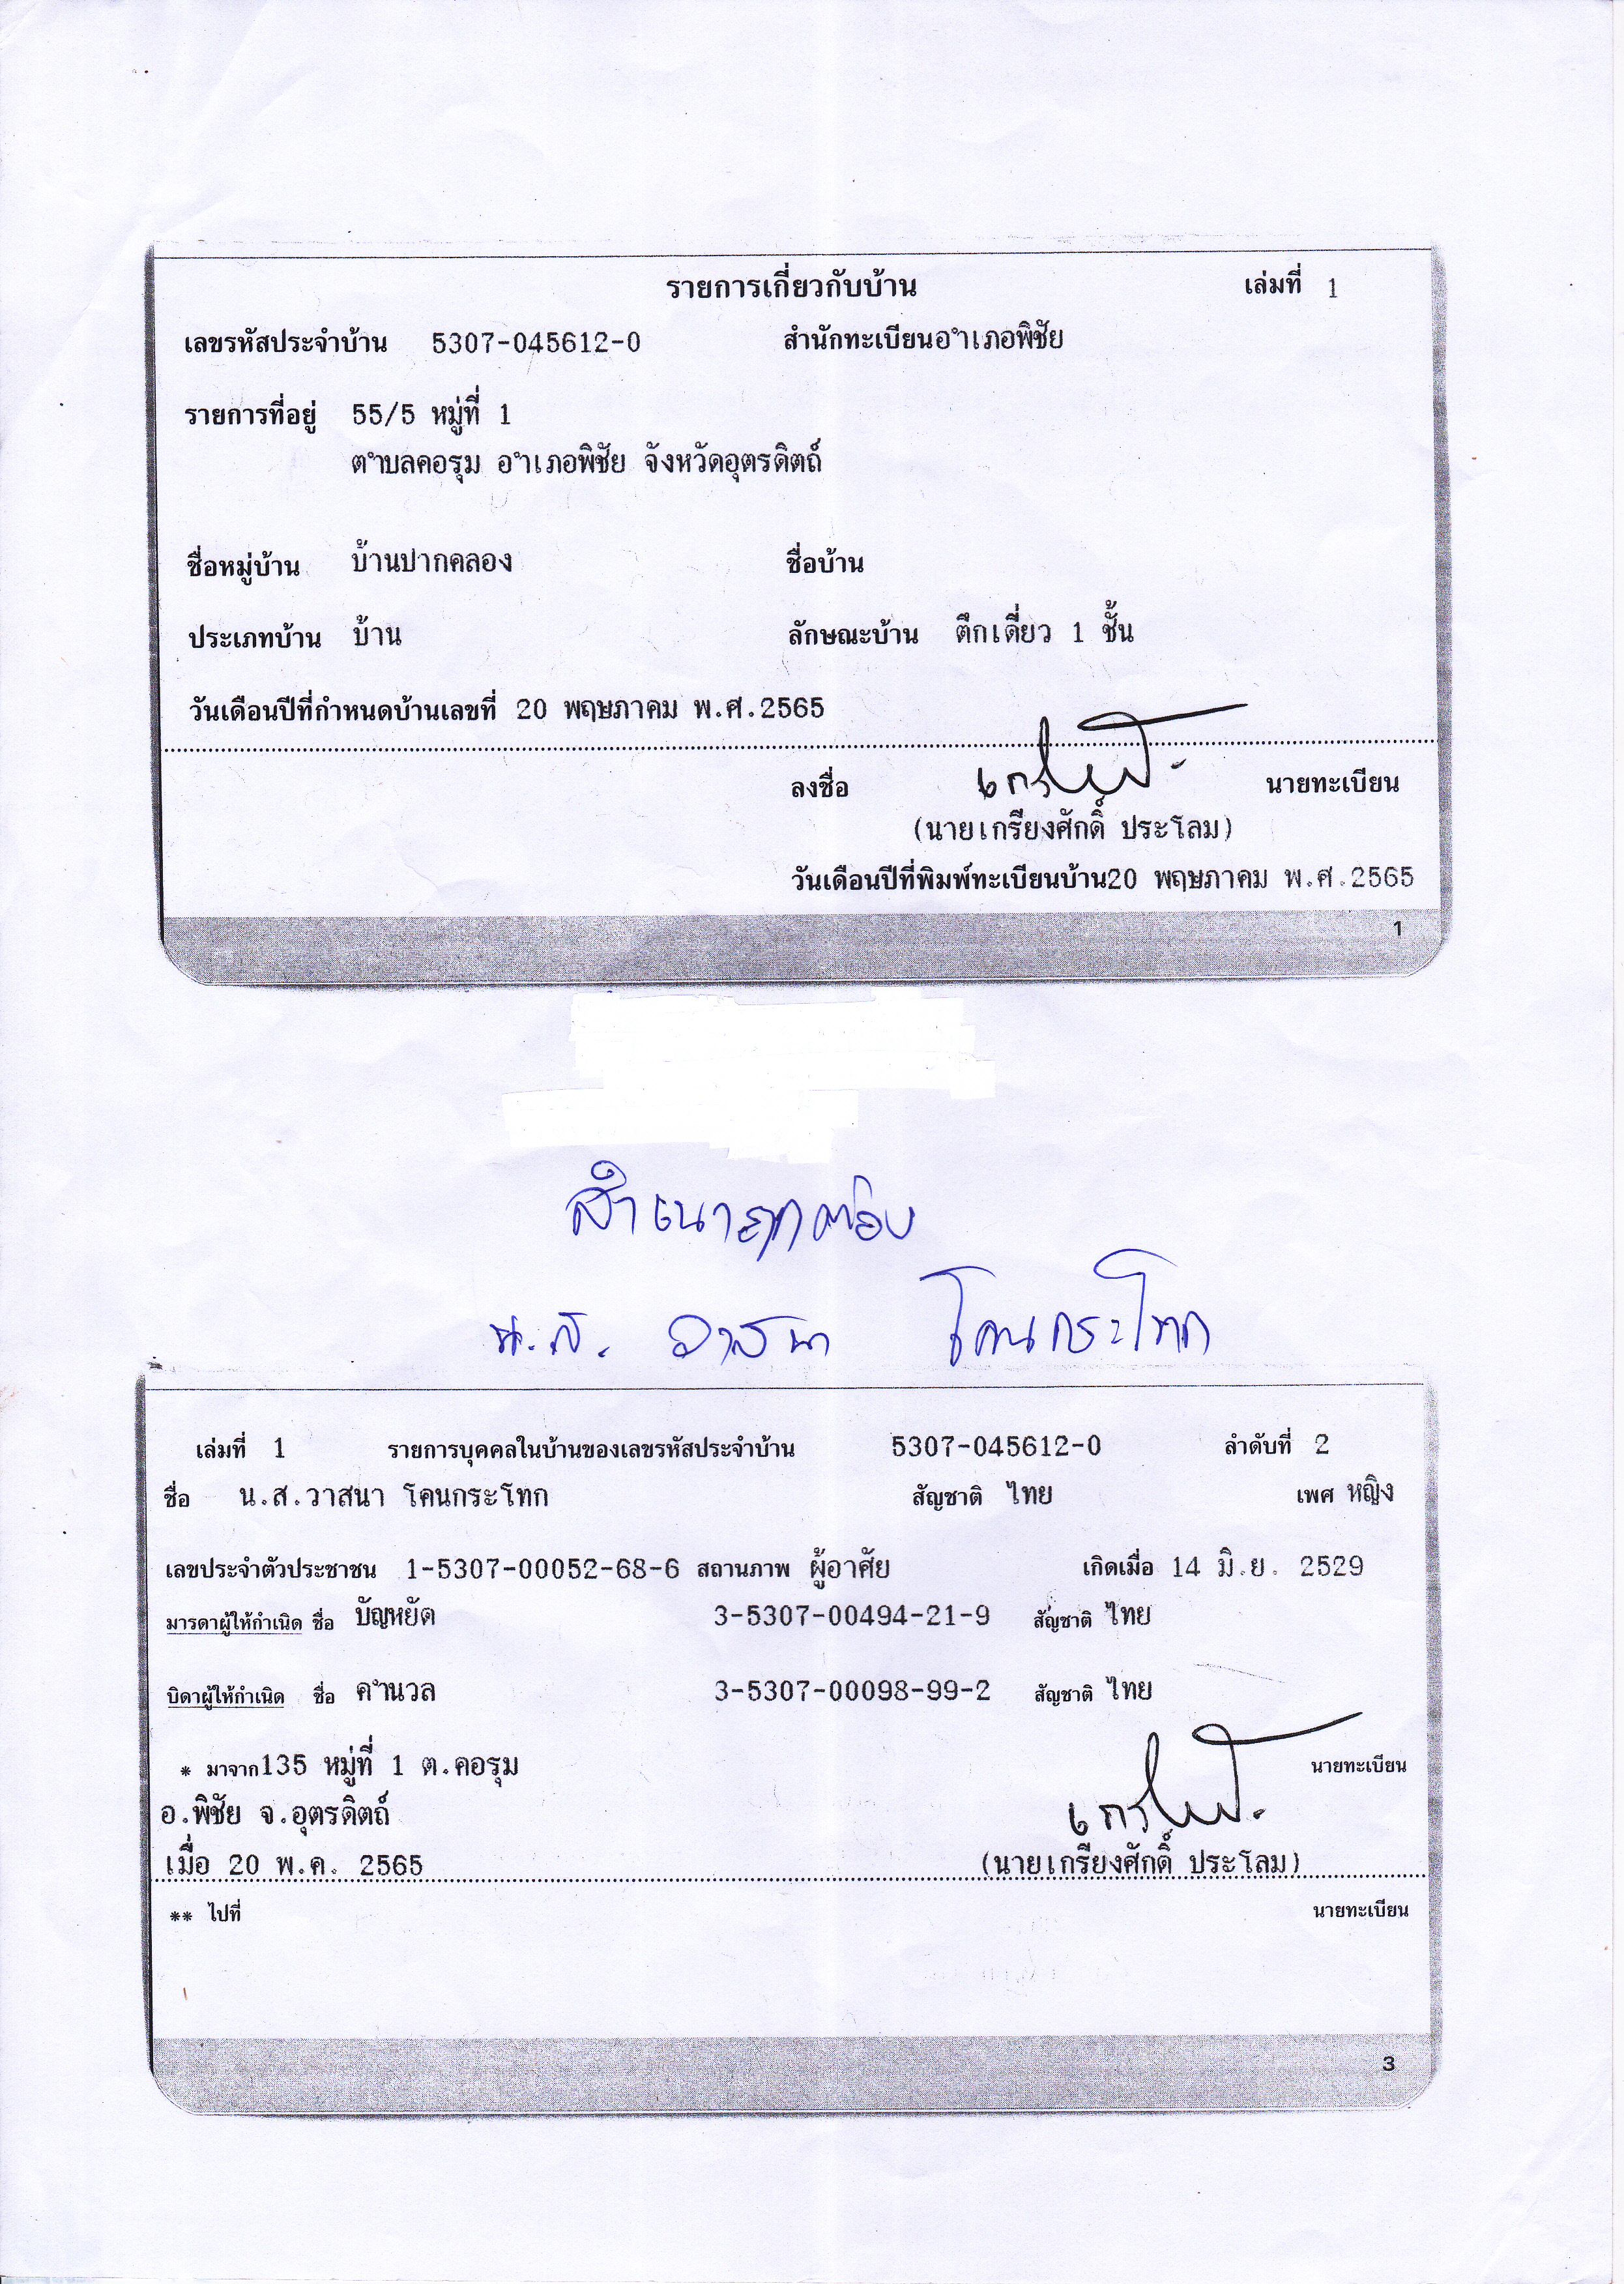 รายการเกี่ยวกับบ้าน เล่มที่ 1
เลขรหัสประจำบ้าน 5307-045612-0 สำนักทะเบียนอำเภอพิชัย
รายการที่อยู่ 55/5 หมู่ที่ 1
ตำบลคอรุม อำเภอพิชัย จังหวัดอุตรดิตถ์
ชื่อหมู่บ้าน บ้านปากคลอง ชื่อบ้าน
ประเภทบ้าน บ้าน ลักษณะบ้าน ตึกเดี่ยว 1 ชั้น
วันเดือนปีที่กำหนดบ้านเลขที่ 20 พฤษภาคม พ.ศ.2565
ลงชื่อ นายทะเบียน
(นายเกรียงศักดิ์ ประโลม)
วันเดือนปีที่พิมพ์ทะเบียนบ้าน20 พฤษภาคม พ.ศ.2565
1
สำเนาถูกต้อง
น.ส. วาสนา โคนกระโทก
เล่มที่ 1 รายการบุคคลในบ้านของเลขรหัสประจำบ้าน 5307-045612-0 ลำดับที่ 2
ชื่อ น.ส.วาสนา โคนกระโทก สัญชาติ ไทย เพศ หญิง
เลขประจำตัวประชาชน 1-5307-00052-68-6 สถานภาพ ผู้อาศัย เกิดเมื่อ 14 มิ.ย. 2529
มารดาผู้ให้กำเนิด ชื่อ บัญหยัด 3-5307-00494-21-9 สัญชาติ ไทย
บิดาผู้ให้กำเนิด ชื่อ คำนวล 3-5307-00098-99-2 สัญชาติ ไทย
* มาจาก135 หมู่ที่ 1 ต.คอรุม นายทะเบียน
อ.พิชัย จ.อุตรดิตถ์
เมื่อ 20 พ.ค. 2565 (นายเกรียงศักดิ์ ประโลม)
** ไปที่ นายทะเบียน
3